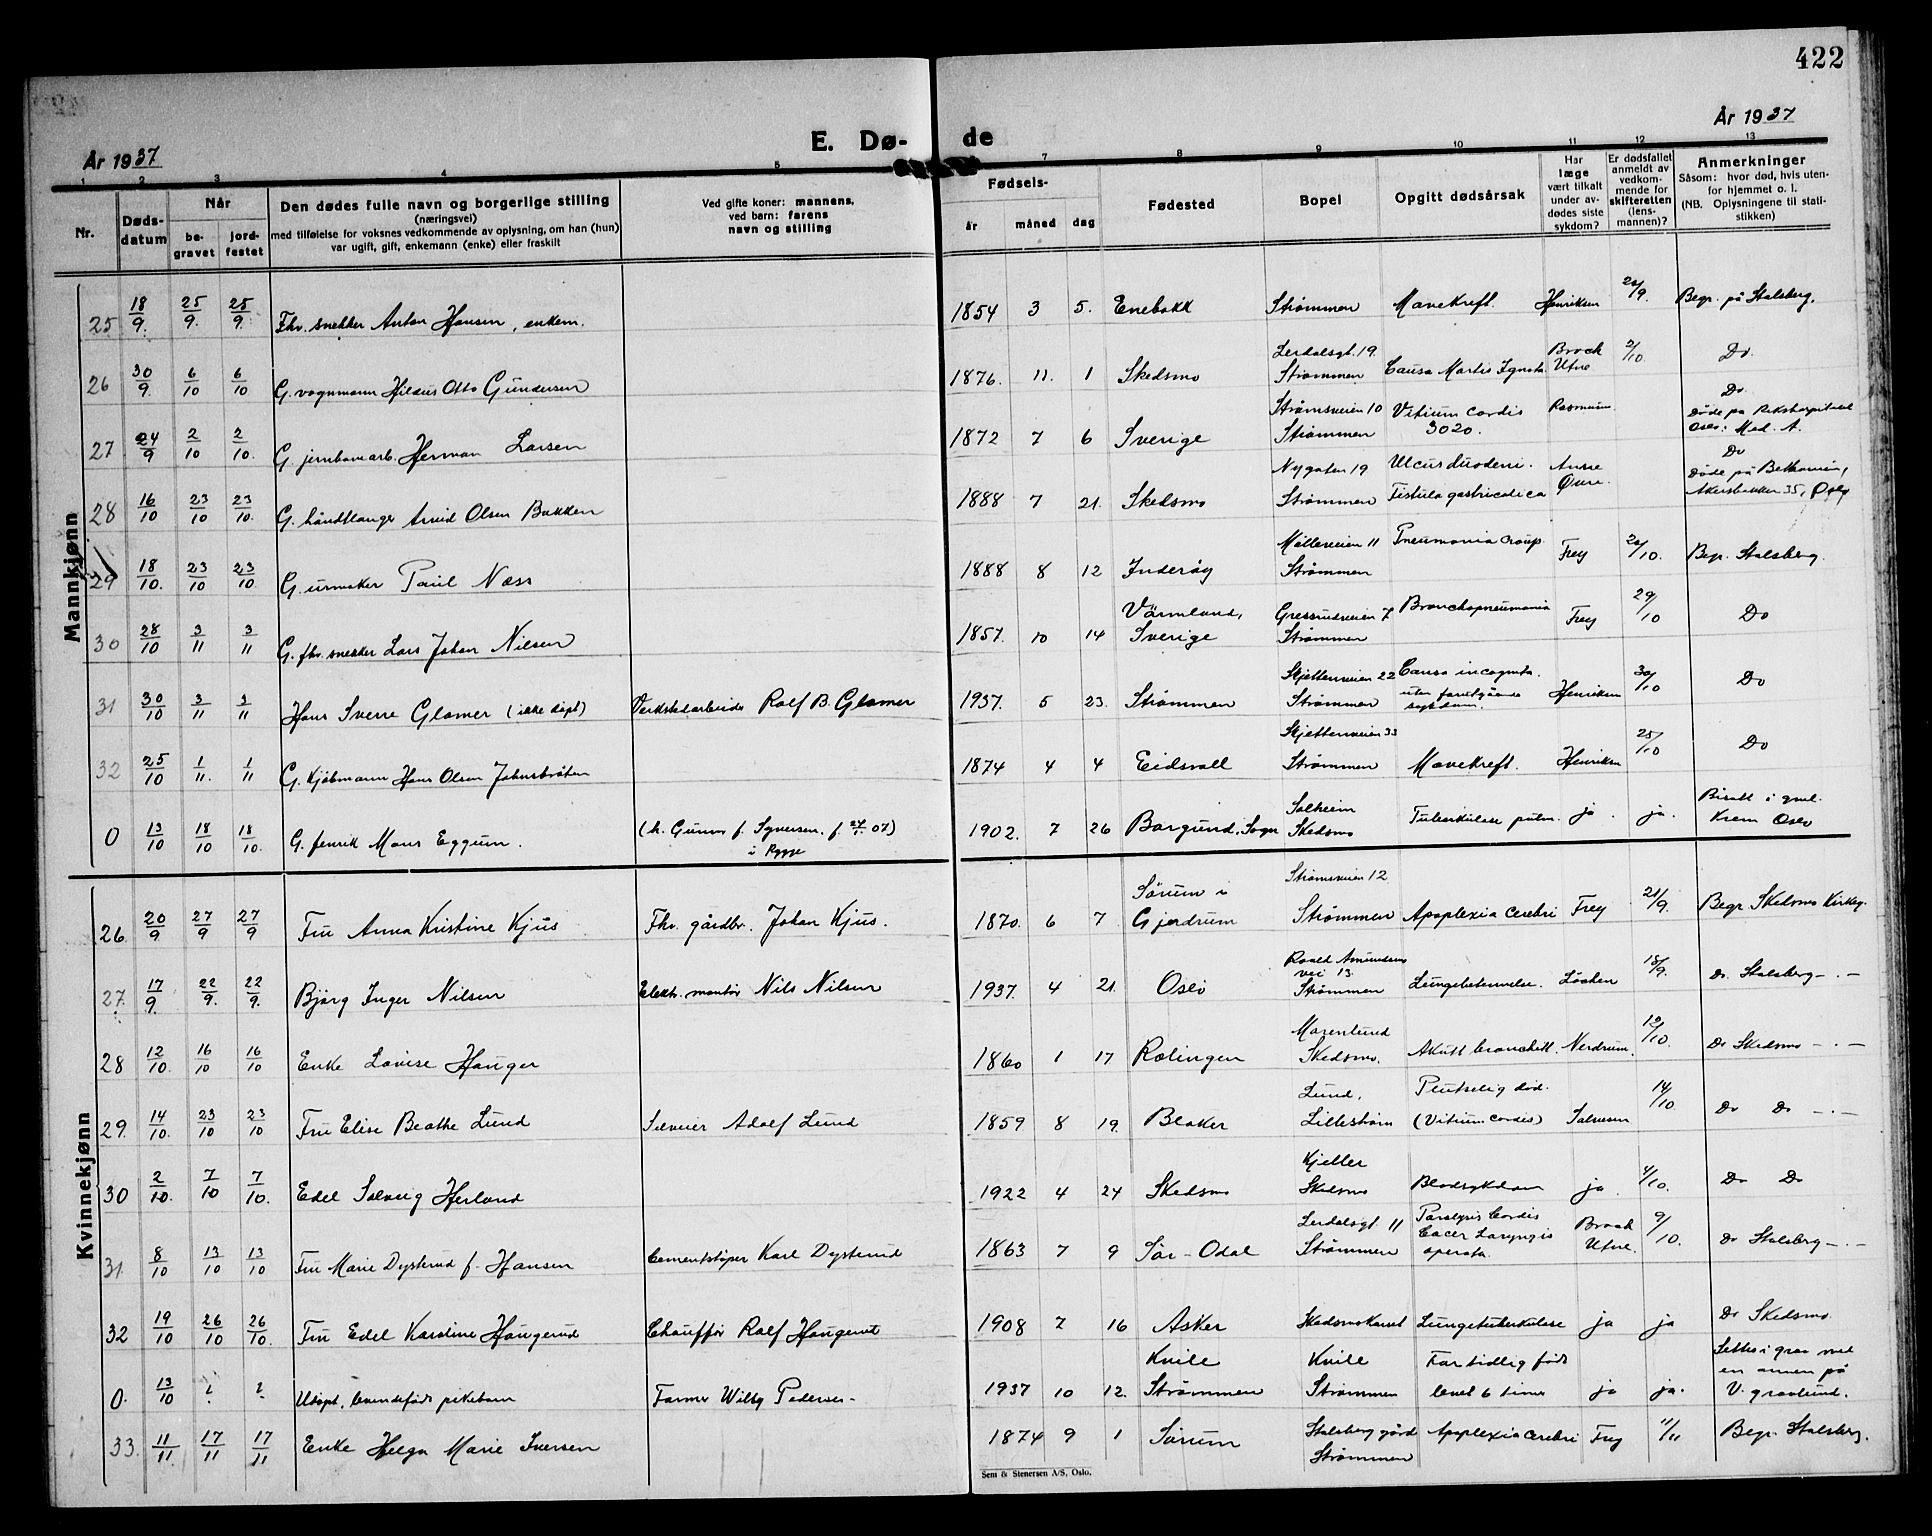 422
År 1937
E. Dø-
de
År 1937
1 2 3 4 5 7 8 9 10 11 12 13
Nr.
Døds-
datum
Når
be-
gravet
jord-
festet
Den dødes fulle navn og borgerlige stilling
(næringsvei)
med tilføielse for voksnes vedkommende av oplysning, om han (hun)
var ugift, gift, enkemann (enke) eller fraskilt
Ved gifte koner: mannens,
ved barn: farens
navn og stilling
Fødsels-
år måned dag
Fødested
Bopel
Opgitt dødsårsak
Har
læge
vært tilkalt
under av-
dødes siste
sykdom?
Er dødsfallet
anmeldt av
vedkom-
mende for
skifteretten
(lens-
mannen)?
Anmerkninger
Såsom: hvor død, hvis uten-
for hjemmet o. l.
(NB. Oplysningene til stati-
stikken)
Mannkjønn
25 18/9. 25/9. 25/9. Fhv. snekker Anton Hansen, enkem. 1854 3 5. Enebakk Strømmen Mavekreft. Henriksen 20/9. Begr. på Stalsberg.
26 30/9. 6/10 6/10. G. vognmann Hildus Otto Gundersen 1876. 11. 1 Skedsmo Lerdalsgt. 19. Strømmen Causa Mortis Ignota Broch Utne 2/10. Do.
27 24/9 2/10 2/10. G. jernbanearb. Herman Larsen 1872 7 6 Sverige Strømsveien 10 Strømmen Vitium cordis 3020. Do. Døde på Rikshospitalet Oslo: Med. A.
28 16/10 23/10 23/10. G. håndtlanger Arvid Olsen Bakken 1888 7 21. Skedsmo Nygaten 19 Strømmen Ulcus duodeni. Fistula gastricolica Do Døde på Bethania, Akersbakken 35, Oslo
29 18/10. 23/10 23/10. G. urmaker Paul Næss 1888 8 12 Inderøy Mølleveien 11 Strømmen Pneumonia croup. Frey 20/10. Begr. Stalsberg.
30 28/10 3/11 3/11 G. fhv. snekker Lars Johan Nilsen 1857. 10 14 Värmland, Sverige Gressrudveien 7 Strømmen Bronchopneumonia Frey 29/10 Do
31 30/10 3/11 3/11 Hans Sverre Glomer (ikke døpt) Verkstedarbeider Rolf B. Glomer 1937. 5 23. Strømmen Skjettenveien 22 Strømmen Causa incognita. uten forutgående sykdom. Henriksen 30/10 Do
32 25/10 1/11. 1/11 G. Kjøbmann Hans Olsen Johnsbråten 1874 4 4 Eidsvoll Skjettenveien 33 Strømmen Mavekreft. Henriksen 25/10 Do
0 13/10 18/10 18/10. G. fenrik Mons Eggum. (h. Gunvor f. Syversen, f. 27/1 07) i Rygge 1902. 7 26 Borgund, Sogn Solheim Skedsmo Tuberkulose pulm. ja. ja. Bisatt i gml. Krem Oslo
Kvinnekjønn
26. 20/9 27/9 27/9 Fru Anna Kristine Kjus Fhv. gårdbr. Johan Kjus. 1870. 6 7. Sørum i Gjerdrum Strømsveien 12 Strømmen Apoplexia cerebri Frey 21/9. Begr. Skedsmo Kirkeg.
27. 17/9. 22/9. 22/9. Bjørg Inger Nilsen Elektr. montør Nils Nilsen 1937. 4 21. Oslo Roald Amundsens vei 13. Strømmen Lungebetennelse. Løchen 18/9. Do. Stalsberg -.-
28 12/10. 16/10 16/10 Enke Lovise Hauger 1860 1 17 Rælingen Marenlund Skedsmo. Akutt bronchitt. Nerdrum. 12/10. Do Skedsmo -.-
29. 14/10. 23/10 23/10 Fru Elise Beathe Lund Selveier Adolf Lund 1859 8 19. Blaker Lund, Lillestrøm Plutselig død. (Vitium cordis) Salvesen 14/10. Do Do -.-
30 2/10. 7/10 7/10. Edel Solveig Herland 1922 4 24 Skedsmo Kjeller Skedsmo Blodsykdom ja. 4/10. Do Do
31. 8/10 13/10 13/10 Fru Marie Dysterud f. Hansen Cementstøper Karl Dysterud 1863 7 9 Sør-Odal Lerdalsgt. 11 Strømmen Paralysis Cordis Cacer Laryngis operata. Broch Utne. 9/10. Do Stalsberg -.-
32 19/10 26/10 26/10. Fru Edel Karoline Haugerud Chauffør Rolf Haugerud 1908 7 16 Asker Skedsmokorset Lungetuberkulose ja ja Do Skedsmo.
0. 13/10 ? ? Udøpt, levendefødt pikebarn Farmer Willy Pedersen 1937 10 12. Kvile Strømmen Kvile Strømmen For tidlig født levet 6 timer ja ja. Settes i grav med en annen på V. gravlund.
33. 11/11 17/11 17/11 Enke Helga Marie Iversen 1874 9 1 Sørum Stalsberg gård Strømmen Apoplexia cerebri Frey 11/11 Begr. Stalsberg.
Sem & Stenersen A/S, Oslo.